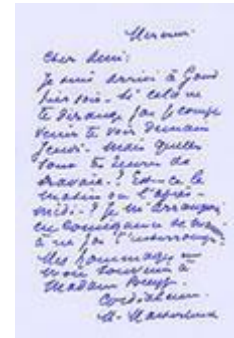 Mercredi
Cher Ami:
Je suis arrivé à Gand
hier soir. Si cela ne
te dérange pas je compte
venir te voir demain
jeudi. Mais quelles
sont tes heures de
travail? Est-ce le
matin ou l'après-
midi? Je m'arrangerai
en conséquence de
à ne pas t'interrompre.
Mes hommages
mon souvenir à
Madame
Cordialement
M. Maeterlinck